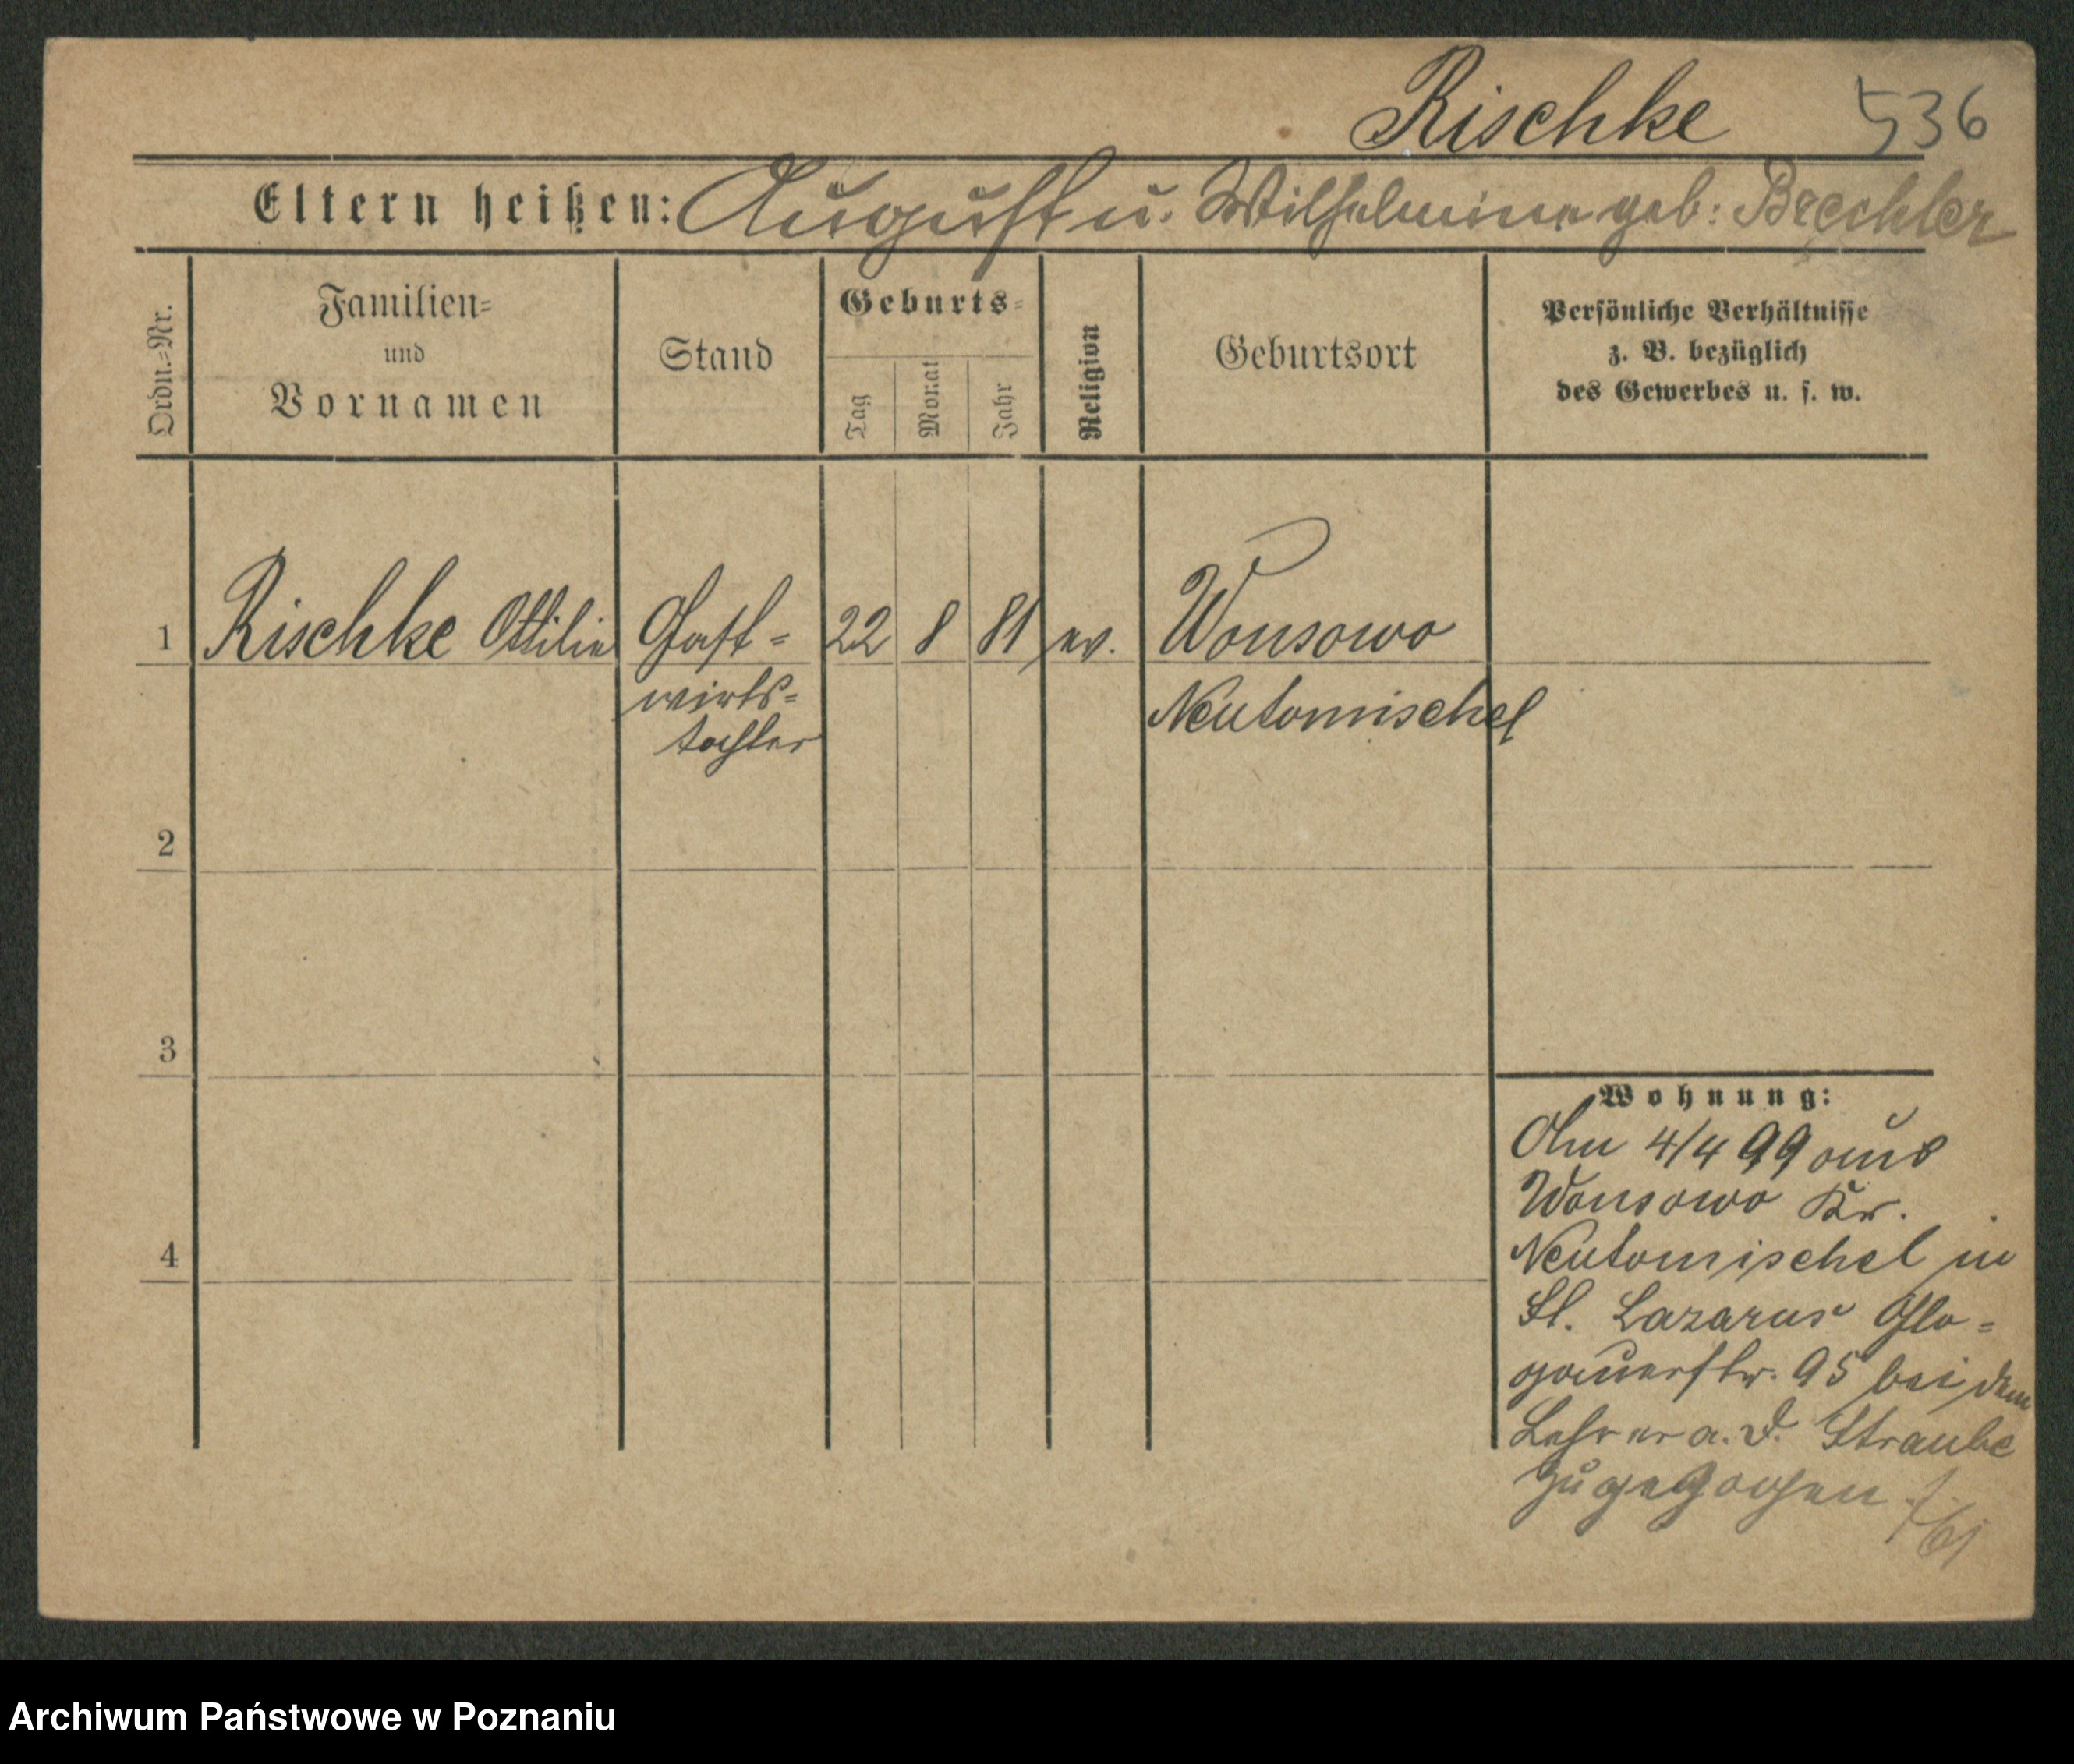 Rischke 536
Eltern heißen: August u. Wilhelmine geb: Brechler
Ordn.=Nr.
Familien=
und
Vornamen
Stand
Geburts=
Tag
Monat
Jahr
Religion
Geburtsort
Persönliche Verhältnisse
z. B. bezüglich
des Gewerbes u. s. w.
1 Rischke Ottilie Gast= 22 8 81 ev. Wonsowo
wirts= Neutomischel
tochter
2
3
4
Wohnung:
Am 4/4 99 aus
Wonsowo Kr.
Neutomischel in
St. Lazarus Glo=
gauerstr. 95 bei dem
Lehrer a. D. Straube
zugezogen
Archiwum Państwowe w Poznaniu